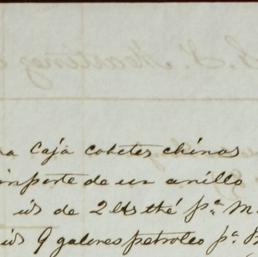 na Caja cohetes chinos
importe de un anillo
id de 2 lbs thé pª M
id 9 galones petroleo pª